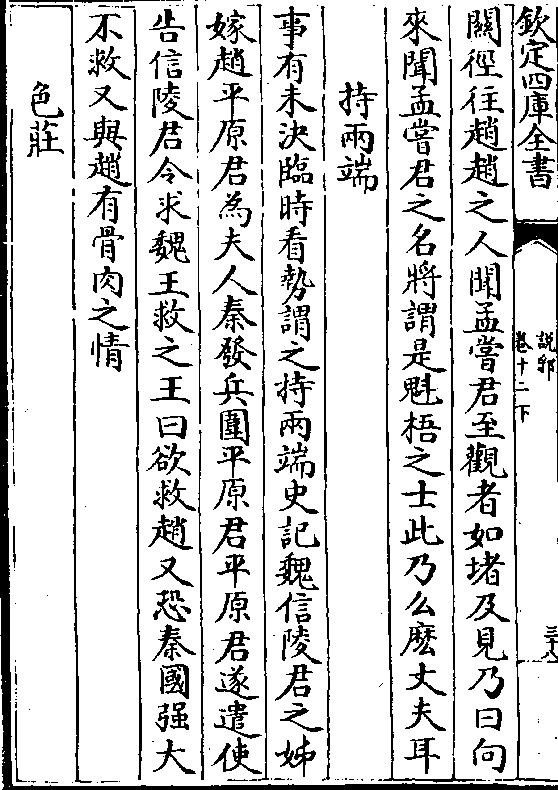 欽定四庫全書
說郛
卷十二下
三十八
關徑往趙趙之人聞孟嘗君至觀者如堵及見乃曰向
來聞孟嘗君之名將謂是魁梧之士此乃么麽丈夫耳
持兩端
事有未決臨時看勢謂之持兩端史記魏信陵君之姊
嫁趙平原君為夫人秦發兵圍平原君平原君遂遣使
告信陵君令求魏王救之王曰欲救趙又恐秦國强大
不救又與趙有骨肉之情
色莊